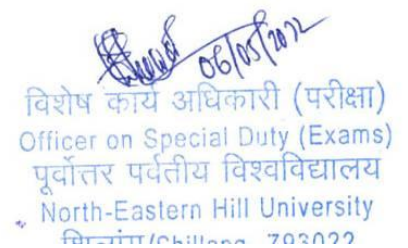 06/05/2022
विशेष कार्य अधिकारी (परीक्षा)
Officer on Special Duty (Exams)
पूर्वोत्तर पर्वतीय विश्वविद्यालय
North-Eastern Hill University
शिलांग/Shillong 793022